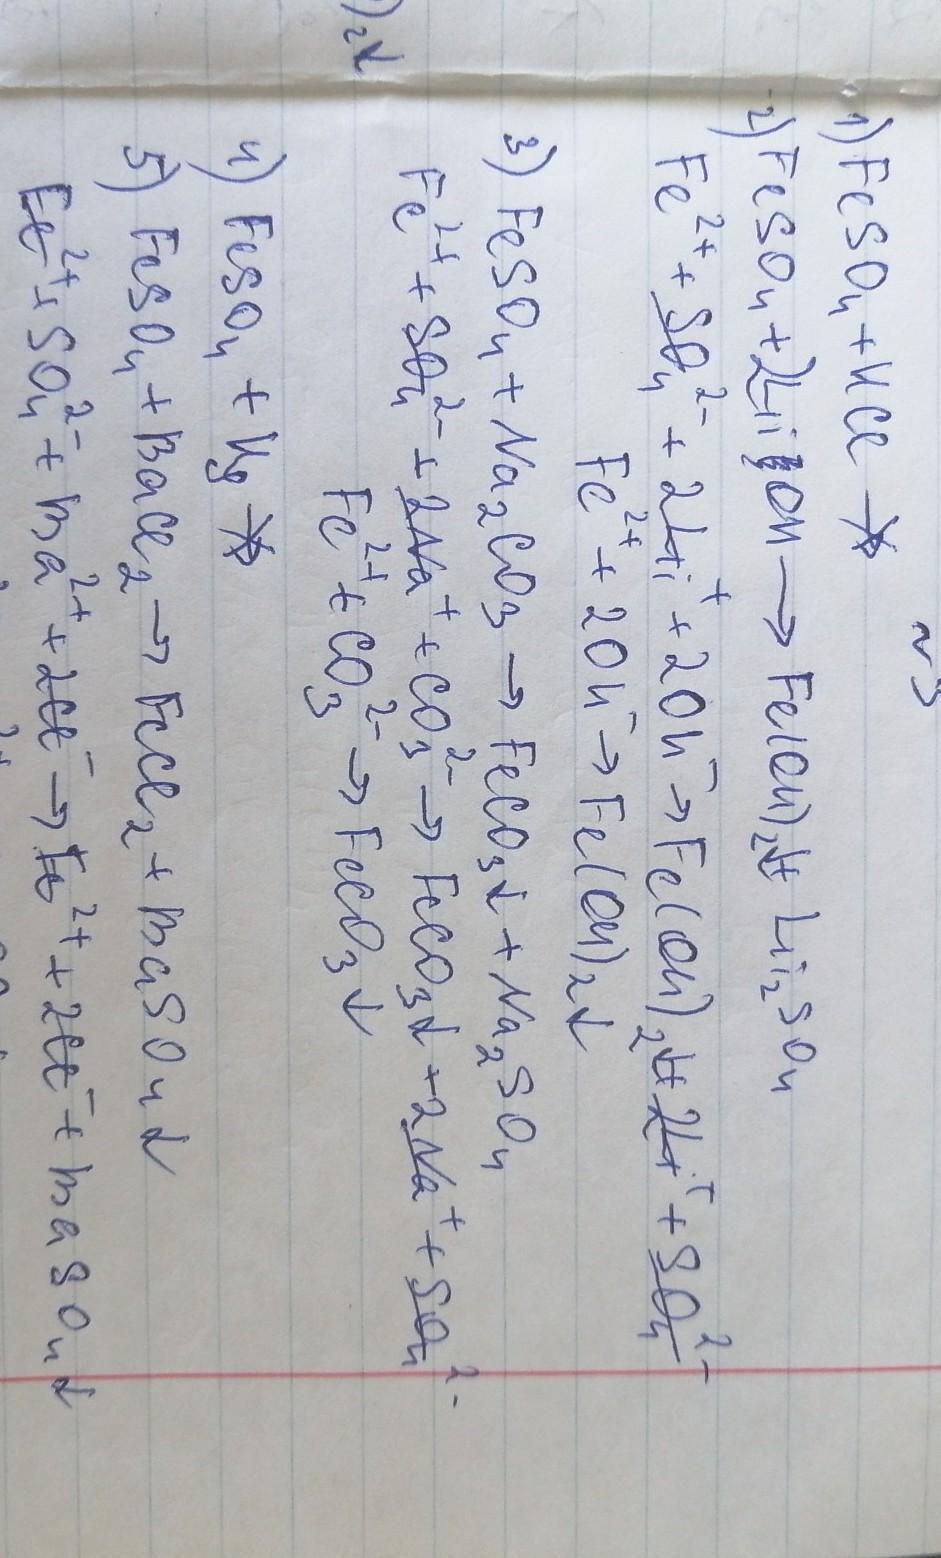 №3
1) FeSO₄ + HCl ↛
2) FeSO₄ + 2LiOH → Fe(OH)₂↓ + Li₂SO₄
Fe²⁺ + SO₄²⁻ + 2Li⁺ + 2OH⁻ → Fe(OH)₂↓ + 2Li⁺ + SO₄²⁻
Fe²⁺ + 2OH⁻ → Fe(OH)₂↓
3) FeSO₄ + Na₂CO₃ → FeCO₃↓ + Na₂SO₄
Fe²⁺ + SO₄²⁻ + 2Na⁺ + CO₃²⁻ → FeCO₃↓ + 2Na⁺ + SO₄²⁻
Fe²⁺ + CO₃²⁻ → FeCO₃↓
4) FeSO₄ + Hg ↛
5) FeSO₄ + BaCl₂ → FeCl₂ + BaSO₄↓
Fe²⁺ + SO₄²⁻ + Ba²⁺ + 2Cl⁻ → Fe²⁺ + 2Cl⁻ + BaSO₄↓
)₂↓